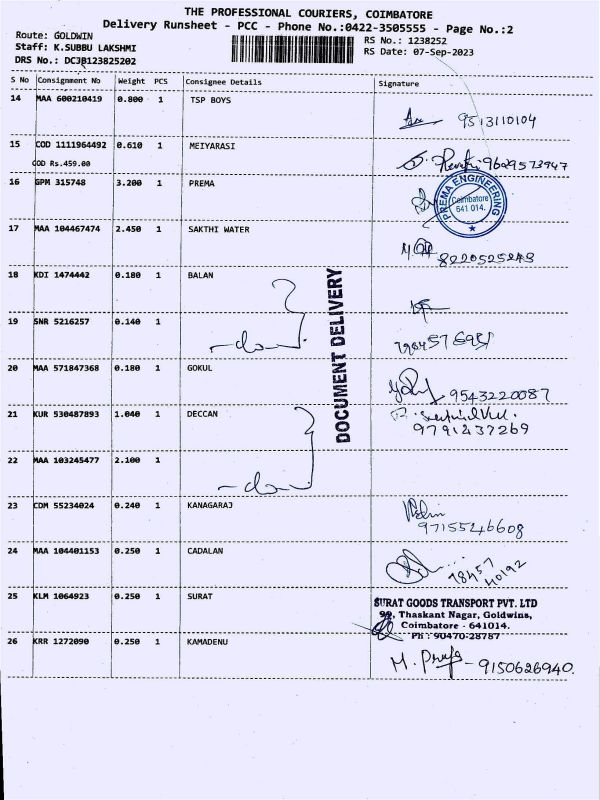 THE PROFESSIONAL COURIERS, COIMBATORE
Delivery Runsheet - PCC - Phone No.:0422-3505555 - Page No.:2
Route: GOLDWIN
Staff: K.SUBBU LAKSHMI
DRS No.: DCJB123825202
RS No.: 1238252
RS Date: 07-Sep-2023
S No Consignment No Weight PCS Consignee Details Signature
14 MAA 600210419 0.800 1 TSP BOYS
9513110104
15 COD 1111964492 0.610 1 MEIYARASI
COD Rs.459.00
9629573947
16 GPM 315748 3.200 1 PREMA
PREMA ENGINEERING
Coimbatore
641 014.
17 MAA 104467474 2.450 1 SAKTHI WATER
8220525243
18 KDI 1474442 0.180 1 BALAN
DOCUMENT DELIVERY
19 SNR 5216257 0.140 1
-do-
20 MAA 571847368 0.180 1 GOKUL
9543220087
21 KUR 530487893 1.040 1 DECCAN
9791437269
22 MAA 103245477 2.100 1
-do-
23 CDM 55234024 0.240 1 KANAGARAJ
9715546608
24 MAA 104401153 0.250 1 CADALAN
78457
40192
25 KLM 1064923 0.250 1 SURAT
SURAT GOODS TRANSPORT PVT. LTD
99, Thaskant Nagar, Goldwins,
Coimbatore - 641014.
Ph : 90470-28787
26 KRR 1272090 0.250 1 KAMADENU
9150626940